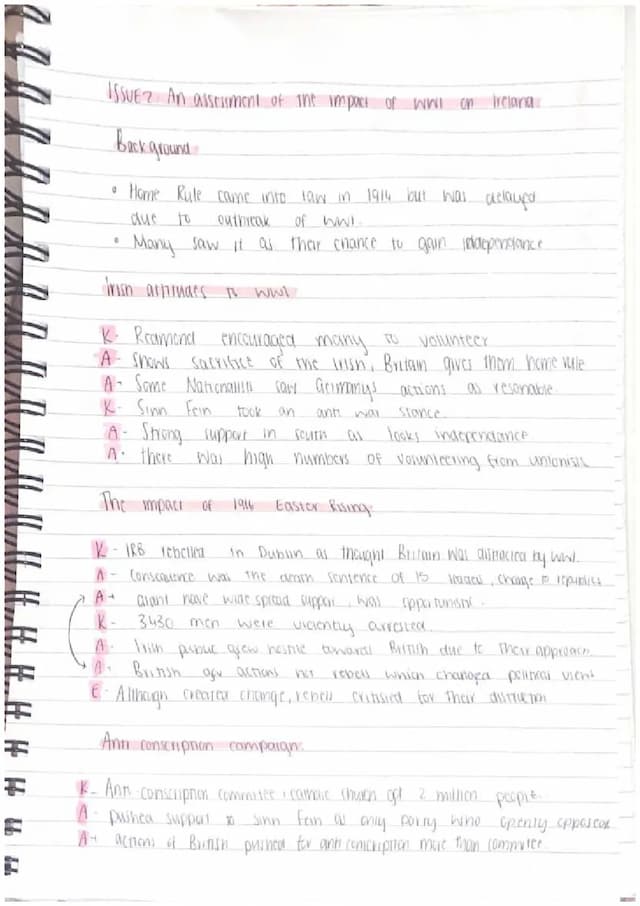 ISSUE 2 An assesment of the impact of WW1 on Ireland
Background
• Home Rule came into law in 1914 but was delayed
due to outbreak of WW1.
• Many saw it as their chance to gain independance
Irish attitudes to WW1
K- Redmond encouraged many to volunteer
A- Shows sacrifice of the Irish, Britain gives them home rule
A+ Some Nationalists saw Germanys actions as resonable
K- Sinn Fein took an anti war stance.
A- Strong support in south as looks independance
A+ there was high numbers of volunteering from unionists
The impact of 1916 Easter Rising.
K- IRB rebelled in Dublin as thought Britain was distracted by WW1.
A- Consequence was the death sentence of 15 leaders, change to republics
A+ didnt have wide spread support, was oppertunistic.
K- 3430 men were violently arrested.
A- Irish public grew hostile towards British due to their approach.
A+ British gov actions not rebels which changed political views
E- Although created change, rebels critisied for their distruction
Anti conscription campaign.
K- Anti-conscription commitee + catholic church got 2 million people.
A- pushed support to Sinn Fein as only party who openly opposed
A+ actions of British pushed for anti conscription more than commitee.